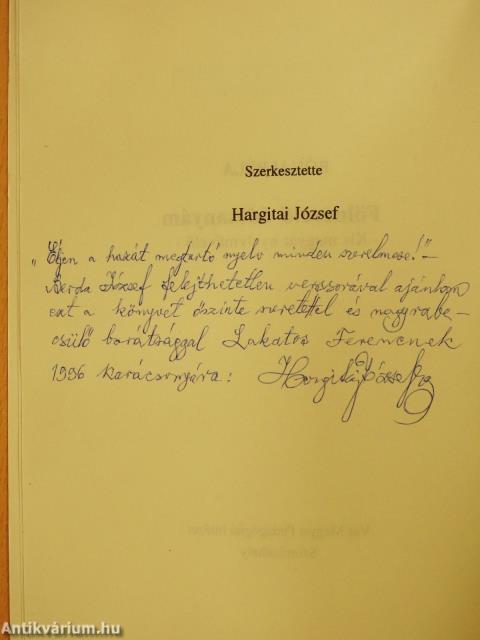 Szerkesztette
Hargitai József
„Éljen a hazát megtartó nyelv minden szerelmese!" –
Berda József felejthetetlen verssorával ajánlom
ezt a könyvet őszinte szeretettel és nagyrabe-
csülő barátsággal Lakatos Ferencnek
1996 karácsonyára: Hargitai József
Vas Megyei Pedagógiai Intézet
Szombathely
Antikvárium.hu